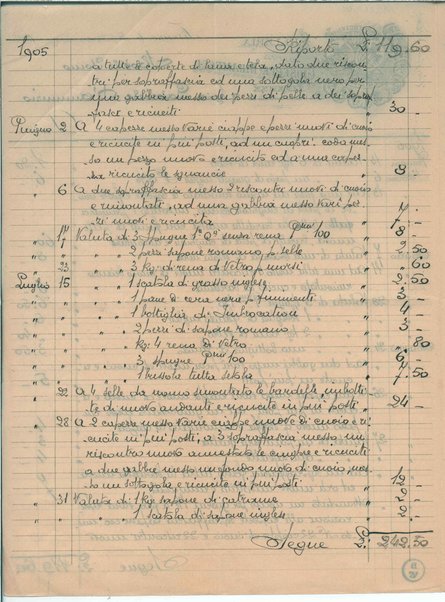 1905 Riporto £ 119.60
a tutte le coperte di lana e tela, dato due riscon
tri per soprafascia ed una sottogola nuova per
una gabbia messo dei pezzi di pelle a dei sopra
fasce e ricuciti " 30 -
Giugno 2 A 4 capezze messo varie ciappe e pezzi nuovi di cuoio
e ricucite in più posti, ad un copri coda mes
so un pezzo nuovo e ricucito ed a una capez
za ricucito le sguancie " 8 -
" 6 A due soprafascia messo 2 riscontri nuovi di cuoio
e rimontati, ad una gabbia messo vari pez
zi nuovi e ricucita " 7 -
" 17 Valuta di 3 spugne 1ª Qª senza rena 100 " 8 -
" " " 2 pezzi sapone romano p. selle " 2.50
" 23 " 3 kg. di rena di Vetro p. morsi " .60
Luglio 15 " 1 scatola di grasso inglese " 2.50
" " " 1 pane di cera nera p. finimenti " 3 -
" " " 1 bottiglia di Imbrocation " 4 -
" " " 2 pezzi di sapone romano " 3 -
" " " kg. 4 rena di Vetro " .80
" " " 3 spugne 100 " 6 -
" " " 1 bussola tutta setola " 7.50
" 22 A 4 selle da uomo smontato le bardelle, imbotti
te di nuovo andanti e ricucite in più posti " 24 -
" 28 A 2 capezze messo varie ciappe nuove di cuoio e ri
cucite in più posti, a 3 soprafascia messo un
riscontro nuovo annestato le cinghie e ricucite
a due gabbie messo un fondo nuovo di cuoio, mes
so un sottogola e ricucite in più posti " 12 -
" 31 Valuta di 1 kg. sapone di catrame " 2 -
" " " 1 scatola di sapone inglese " 2 -
Segue £. 242.50